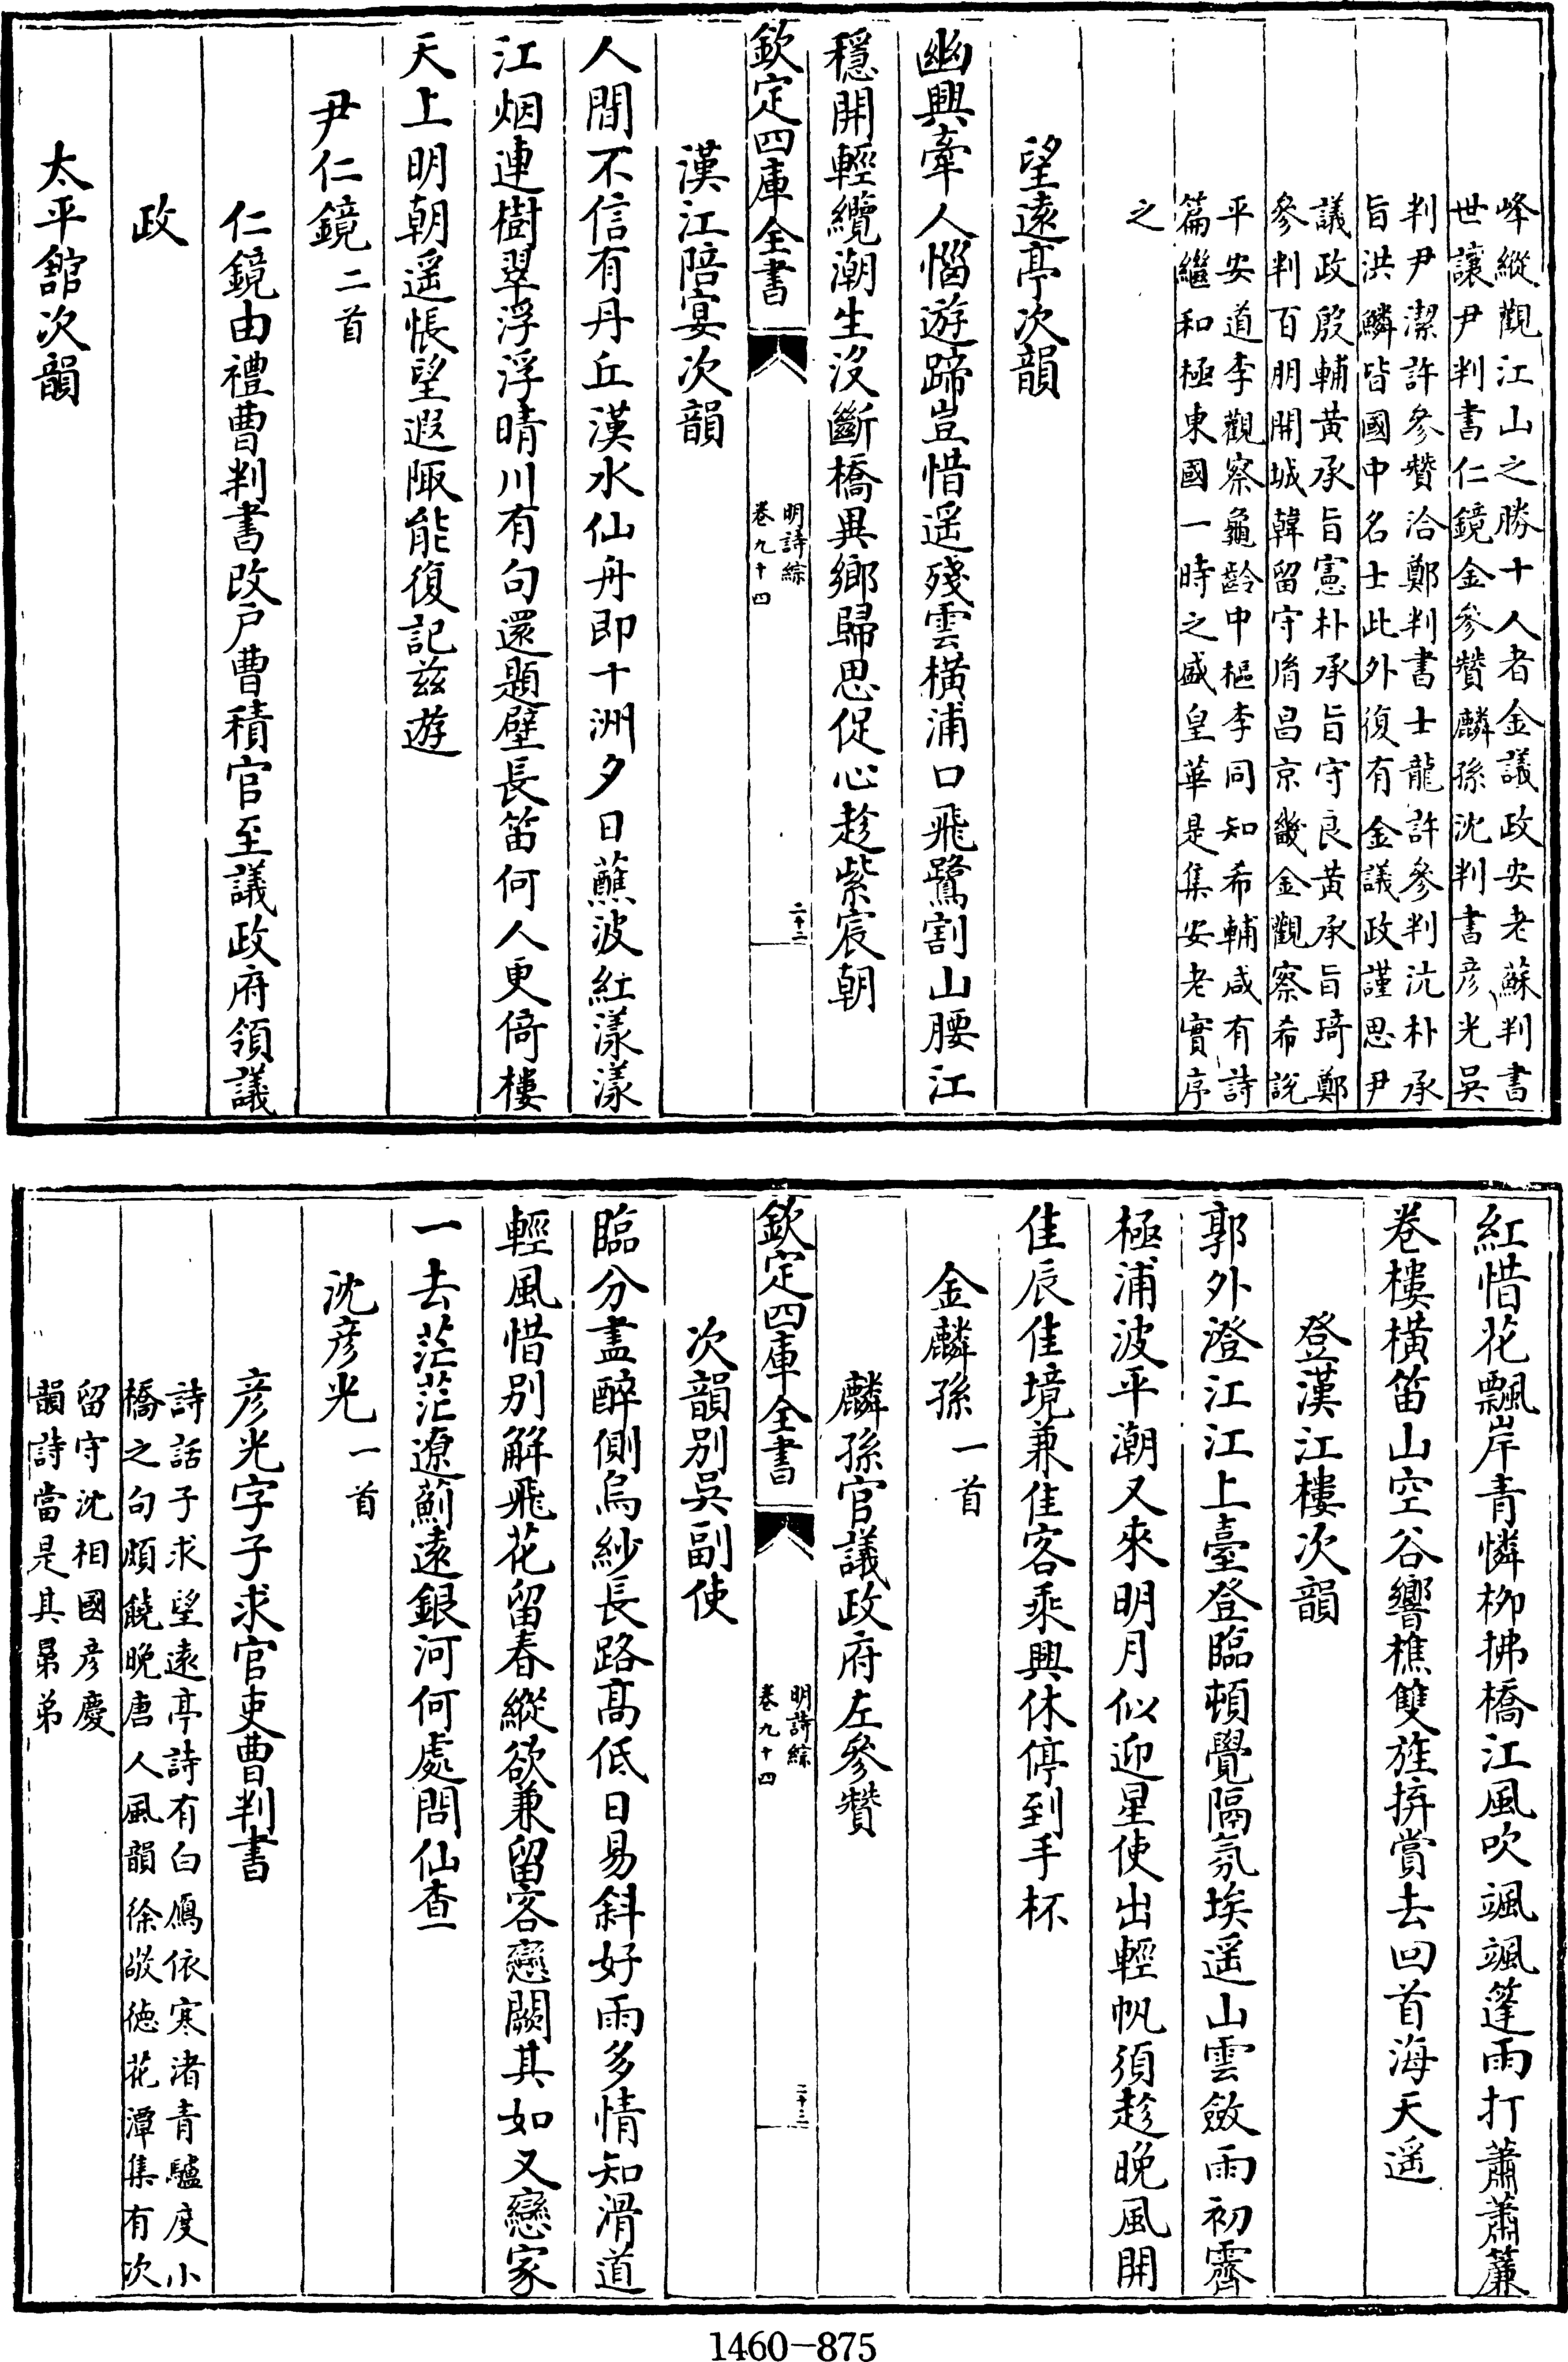 峰縱觀江山之勝十人者金議政安老蘇判書
世讓尹判書仁鏡金參贊麟孫沈判書彦光吳
判尹潔許參贊洽鄭判書士龍許參判沆朴承
旨洪鱗皆國中名士此外復有金議政謹思尹
議政殷輔黃承旨憲朴承旨守良黃承旨琦鄭
參判百朋開城韓留守㣧昌京畿金觀察希說
平安道李觀察龜齡中樞李同知希輔咸有詩
篇繼和極東國一時之盛皇華是集安老實序
之
望遠亭次韻
幽興牽人惱遊蹄豈惜遥殘雲橫浦口飛鷺割山腰江
穩開輕纜潮生沒斷橋異鄉歸思促心趁紫宸朝
欽定四庫全書
明詩綜
卷九十四
二十二
漢江陪宴次韻
人間不信有丹丘漢水仙舟即十洲夕日蘸波紅漾漾
江烟連樹翠浮浮晴川有句還題壁長笛何人更倚樓
天上明朝遥悵望遐陬能復記兹遊
尹仁鏡二首
仁鏡由禮曹判書改戶曹積官至議政府領議
政
太平舘次韻
紅惜花飄岸青憐柳拂橋江風吹颯颯篷雨打蕭蕭簾
卷樓橫笛山空谷響樵雙旌拚賞去回首海天遥
登漢江樓次韻
郭外澄江江上臺登臨頓覺隔氛埃遥山雲斂雨初霽
極浦波平潮又來明月似迎星使出輕帆須趁晚風開
佳辰佳境兼佳客乘興休停到手杯
金麟孫一首
麟孫官議政府左參贊
欽定四庫全書
明詩綜
卷九十四
二十三
次韻别吳副使
臨分盡醉側烏紗長路高低日易斜好雨多情知滑道
輕風惜别解飛花留春縱欲兼留客戀闕其如又戀家
一去茫茫遼薊遠銀河何處問仙查
沈彦光一首
彦光字子求官吏曹判書
詩話子求望遠亭詩有白鴈依寒渚青驢度小
橋之句頗饒晚唐人風韻徐敬德花潭集有次
留守沈相國彦慶
韻詩當是其㫷弟